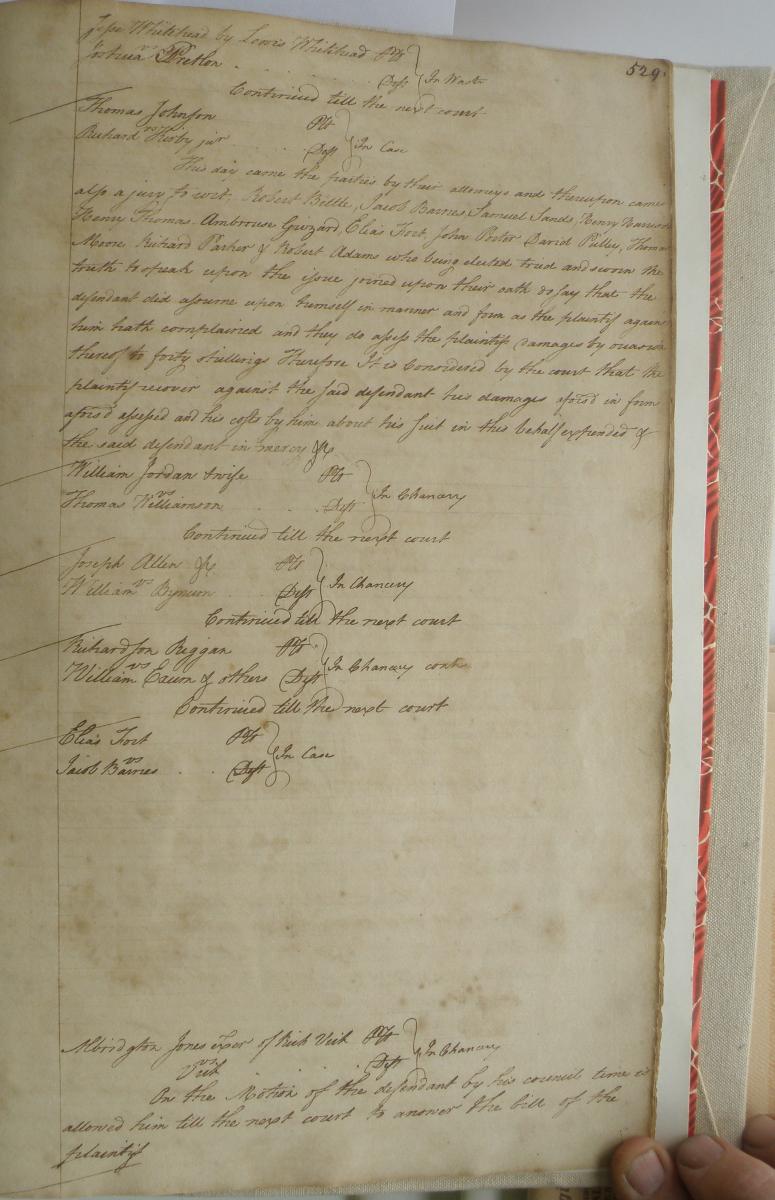 529.
Jesse Whitehead by Lewis Whitehead Plt
vs
Joshua Pretlow . . . . . Deft } In Waste
Continued till the next court
Thomas Johnson Plt
vs
Richard Kirby jur . . . . Deft } In Case
This day came the parties by their attorneys and thereupon came
also a jury to wit, Robert Bittle, Jacob Barnes, Samuel Sands, Henry Harrison
Henry Thomas, Ambrouse Gwizard, Elias Fort John Porter David Pulley, Thomas
Moore, Richard Parker & Robert Adams who being elected tried and sworn the
truth to speak upon the issue joined upon their oath do say that the
defendant did assume upon himself in manner and form as the plaintif against
him hath complained and they do assess the plaintifs Damages by occasion
thereof to forty shillings Therefore It is Considered by the court that the
plaintif recover against the said defendant his damages aforsd in form
aforsd assessed and his costs by him about his suit in this behalf expended &
the said defendant in mercy &c
William Jordan & wife Plt
vs
Thomas Williamson . . . . Deft } In Chancery
Continued till the next court
Joseph Allen &c Plt
vs
William Bynum . . Deft } In Chancery
Continued till the next court
Richardson Reggan Plt
vs
William Exum & others Deft } In Chancery
Continued till the next court
Elias Fort Plt
vs
Jacob Barnes . . Deft } In Case
Albridgton Jones exor of Rich Vick Plt
vs
Vick . . . . Deft } In Chancery
On the Motion of the defendant by his council time is
allowed him till the next court to answer the bill of the
plaintif